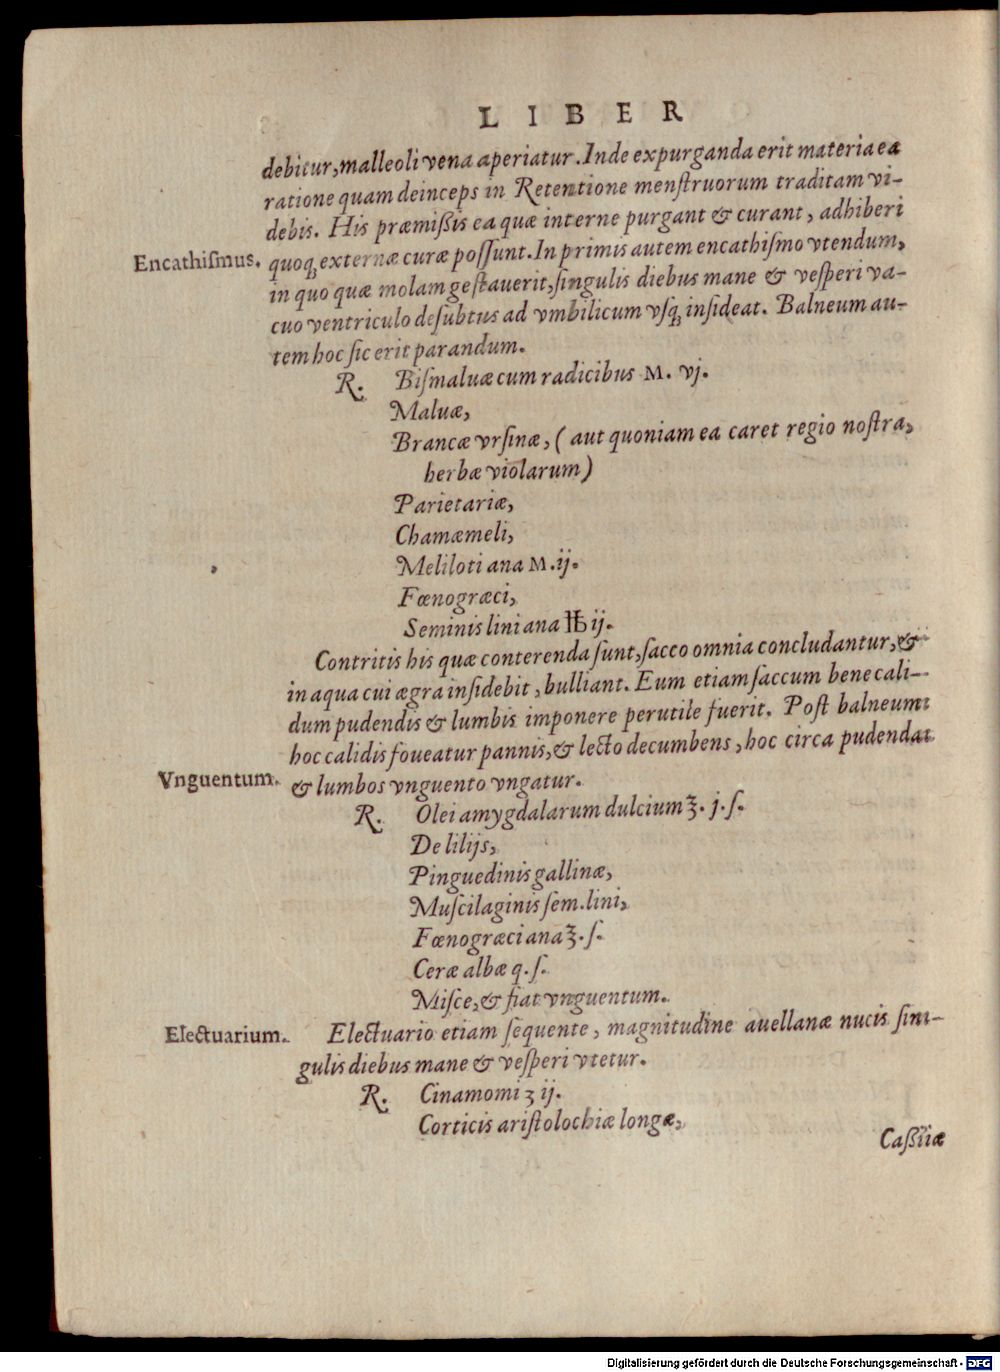 LIBER
debitur, malleoli vena aperiatur. Inde expurganda erit materia ea
ratione quam deinceps in Retentione menſtruorum traditam vi-
debis. His præmißis ea quæ interne purgant & curant, adhiberi
Encathiſmus. quoq; externæ curæ poſſunt. In primis autem encathiſmo vtendum,
in quo quæ molam geſtauerit, ſingulis diebus mane & veſperi va-
cuo ventriculo deſubtus ad vmbilicum vſq; inſideat. Balneum au-
tem hoc ſic erit parandum.
R. Biſmaluæ cum radicibus M. vj.
Maluæ,
Brancæ vrſinæ, ( aut quoniam ea caret regio noſtra,
herbæ violarum )
Parietariæ,
Chamæmeli,
Meliloti ana M. ij.
Fœnogræci,
Seminis lini ana ℔ ij.
Contritis his quæ conterenda ſunt, ſacco omnia concludantur, &
in aqua cui ægra inſidebit, bulliant. Eum etiam ſaccum bene cali-
dum pudendis & lumbis imponere perutile fuerit. Poſt balneum
hoc calidis foueatur pannis, & lecto decumbens, hoc circa pudenda
Vnguentum. & lumbos vnguento vngatur.
R. Olei amygdalarum dulcium ℥. j. ſ.
De lilijs,
Pinguedinis gallinæ,
Muſcilaginis ſem. lini,
Fœnogræci ana ℥. ſ.
Ceræ albæ q. ſ.
Miſce, & fiat vnguentum.
Electuarium. Electuario etiam ſequente, magnitudine auellanæ nucis ſin-
gulis diebus mane & veſperi vtetur.
R. Cinamomi ʒ ij.
Corticis ariſtolochiæ longæ,
Caßiæ
Digitalisierung gefördert durch die Deutsche Forschungsgemeinschaft - DFG